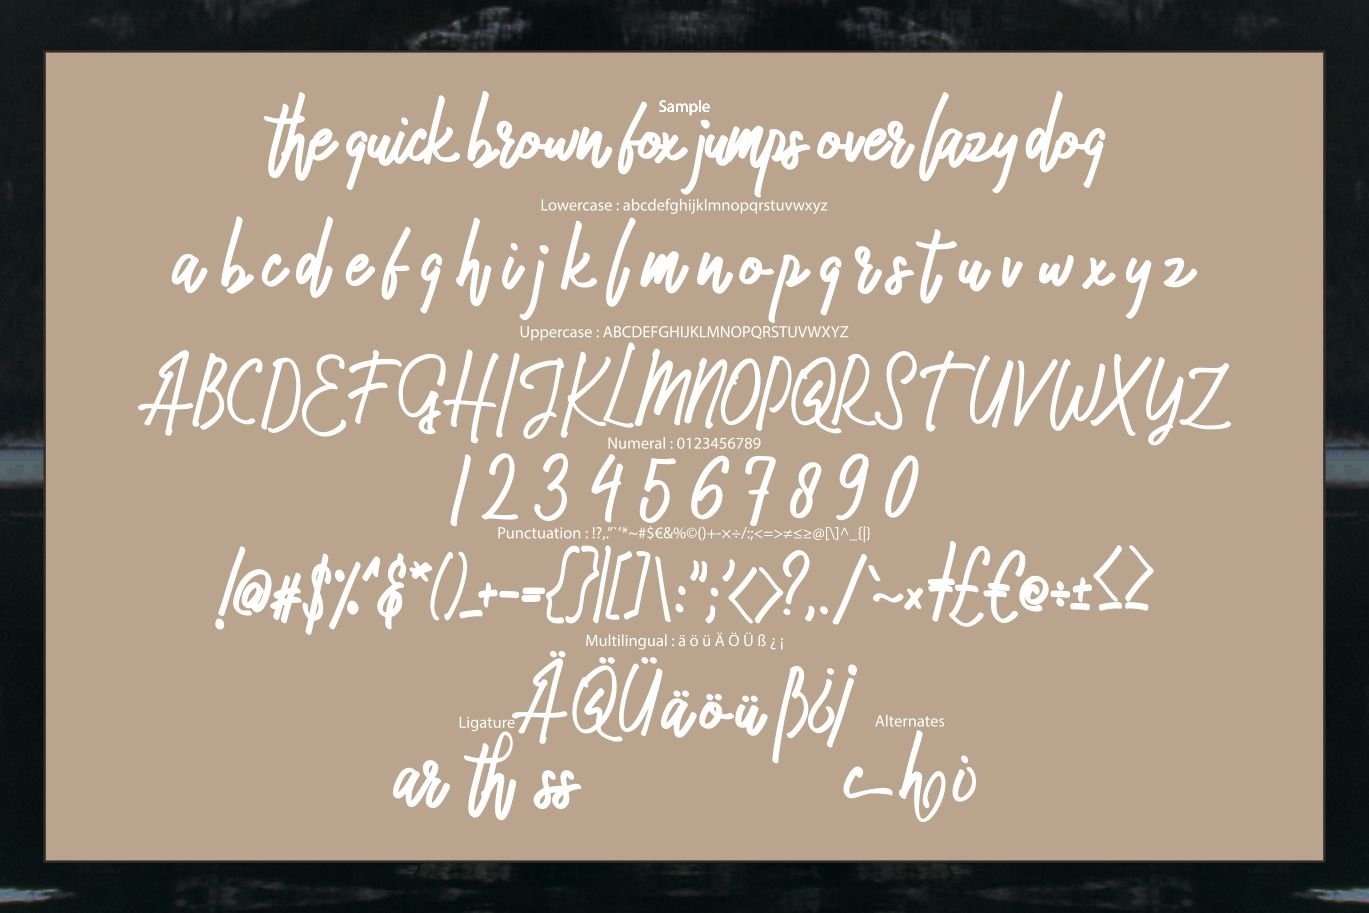 Sample
the quick brown fox jumps over lazy dog
Lowercase : abcdefghijklmnopqrstuvwxyz
a b c d e f g h i j k l m n o p q r s t u v w x y z
Uppercase : ABCDEFGHIJKLMNOPQRSTUVWXYZ
ABCDEFGHIJKLMNOPQRSTUVWXYZ
Numeral : 0123456789
1 2 3 4 5 6 7 8 9 0
Punctuation : !?,."`'*~#$€&%©()+-×÷/:;<=>≠≤≥@[\]^_{|}
!@#$%^&*()_+-={}|[]\:";'<>?,./`~×ŧ£€©÷±≤≥
Multilingual : ä ö ü Ä Ö Ü ß ¿ ¡
ÄÖÜäöüß¿¡
Ligature
Alternates
ar th ss
c h i